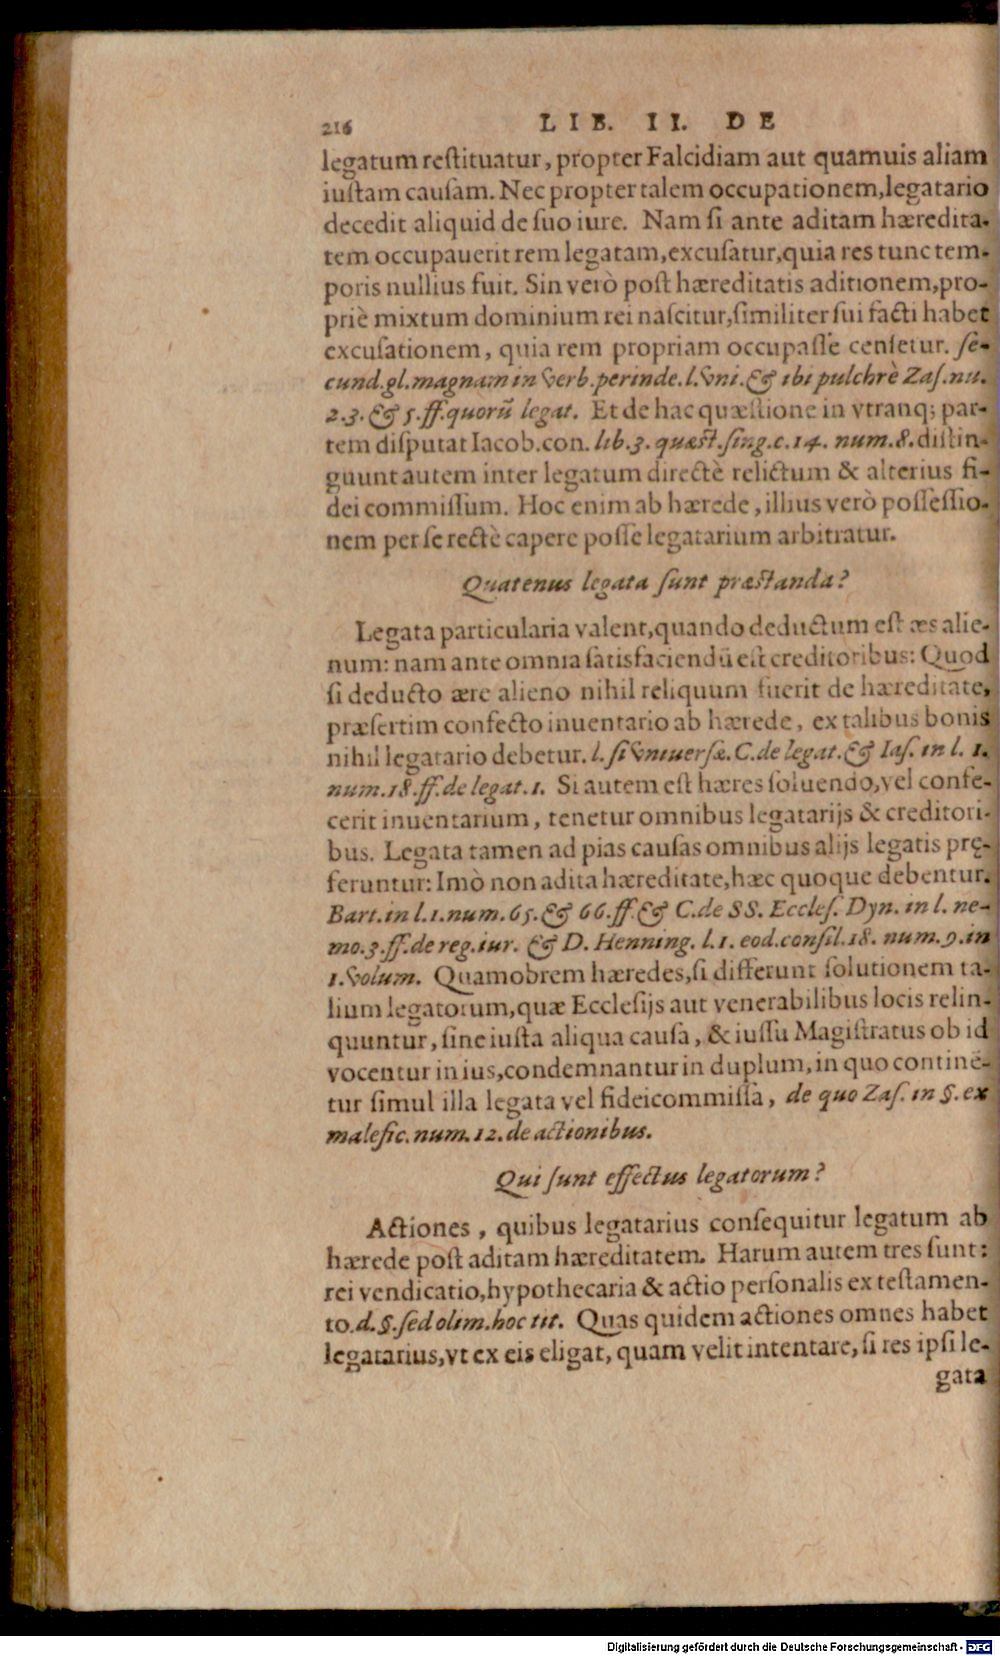 216 LIB. II. DE
legatum restituatur, propter Falcidiam aut quamuis aliam
iustam causam. Nec propter talem occupationem, legatario
decedit aliquid de suo iure. Nam si ante aditam hæredita-
tem occupauerit rem legatam, excusatur, quia res tunc tem-
poris nullius fuit. Sin verò post hæreditatis aditionem, pro-
priè mixtum dominium rei nascitur, similiter sui facti habet
excusationem, quia rem propriam occupasse censetur. se-
cund. gl. magnam in verb. perinde. l. vni. & ibi pulchrè Zas. nu.
2.3. & 5. ff. quorū legat. Et de hac quæstione in vtranq; par-
tem disputat Iacob. con. lib. 3. quæst. sing. c. 14. num. 8. distin-
guunt autem inter legatum directè relictum & alterius fi-
dei commissum. Hoc enim ab hærede, illius verò possessio-
nem per se rectè capere posse legatarium arbitratur.
Quatenus legata sunt præstanda?
Legata particularia valent, quando deductum est æs alie-
num: nam ante omnia satisfaciendū est creditoribus: Quod
si deducto ære alieno nihil reliquum fuerit de hæreditate,
præsertim confecto inuentario ab hærede, ex talibus bonis
nihil legatario debetur. l. si vniuersæ. C. de legat. & Ias. in l. 1.
num. 18. ff. de legat. 1. Si autem est hæres soluendo, vel confe-
cerit inuentarium, tenetur omnibus legatarijs & creditori-
bus. Legata tamen ad pias causas omnibus alijs legatis prę-
feruntur: Imò non adita hæreditate, hæc quoque debentur.
Bart. in l. 1. num. 65. & 66. ff. & C. de SS. Eccles. Dyn. in l. ne-
mo. 3. ff. de reg. iur. & D. Henning. l. 1. eod. consil. 18. num. 9. in
1. volum. Quamobrem hæredes, si differunt solutionem ta-
lium legatorum, quæ Ecclesijs aut venerabilibus locis relin-
quuntur, sine iusta aliqua causa, & iussu Magistratus ob id
vocentur in ius, condemnantur in duplum, in quo continē-
tur simul illa legata vel fideicommissa, de quo Zas. in §. ex
malefic. num. 12. de actionibus.
Qui sunt effectus legatorum?
Actiones, quibus legatarius consequitur legatum ab
hærede post aditam hæreditatem. Harum autem tres sunt:
rei vendicatio, hypothecaria & actio personalis ex testamen-
to. d. §. sed olim. hoc tit. Quas quidem actiones omnes habet
legatarius, vt ex eis eligat, quam velit intentare, si res ipsi le-
gata
Digitalisierung gefördert durch die Deutsche Forschungsgemeinschaft - DFG